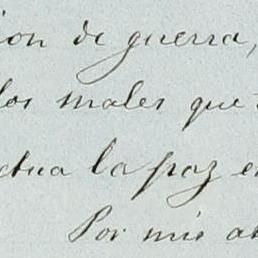 ion de guerra,
los males que
ctua la paz en
Por mis at